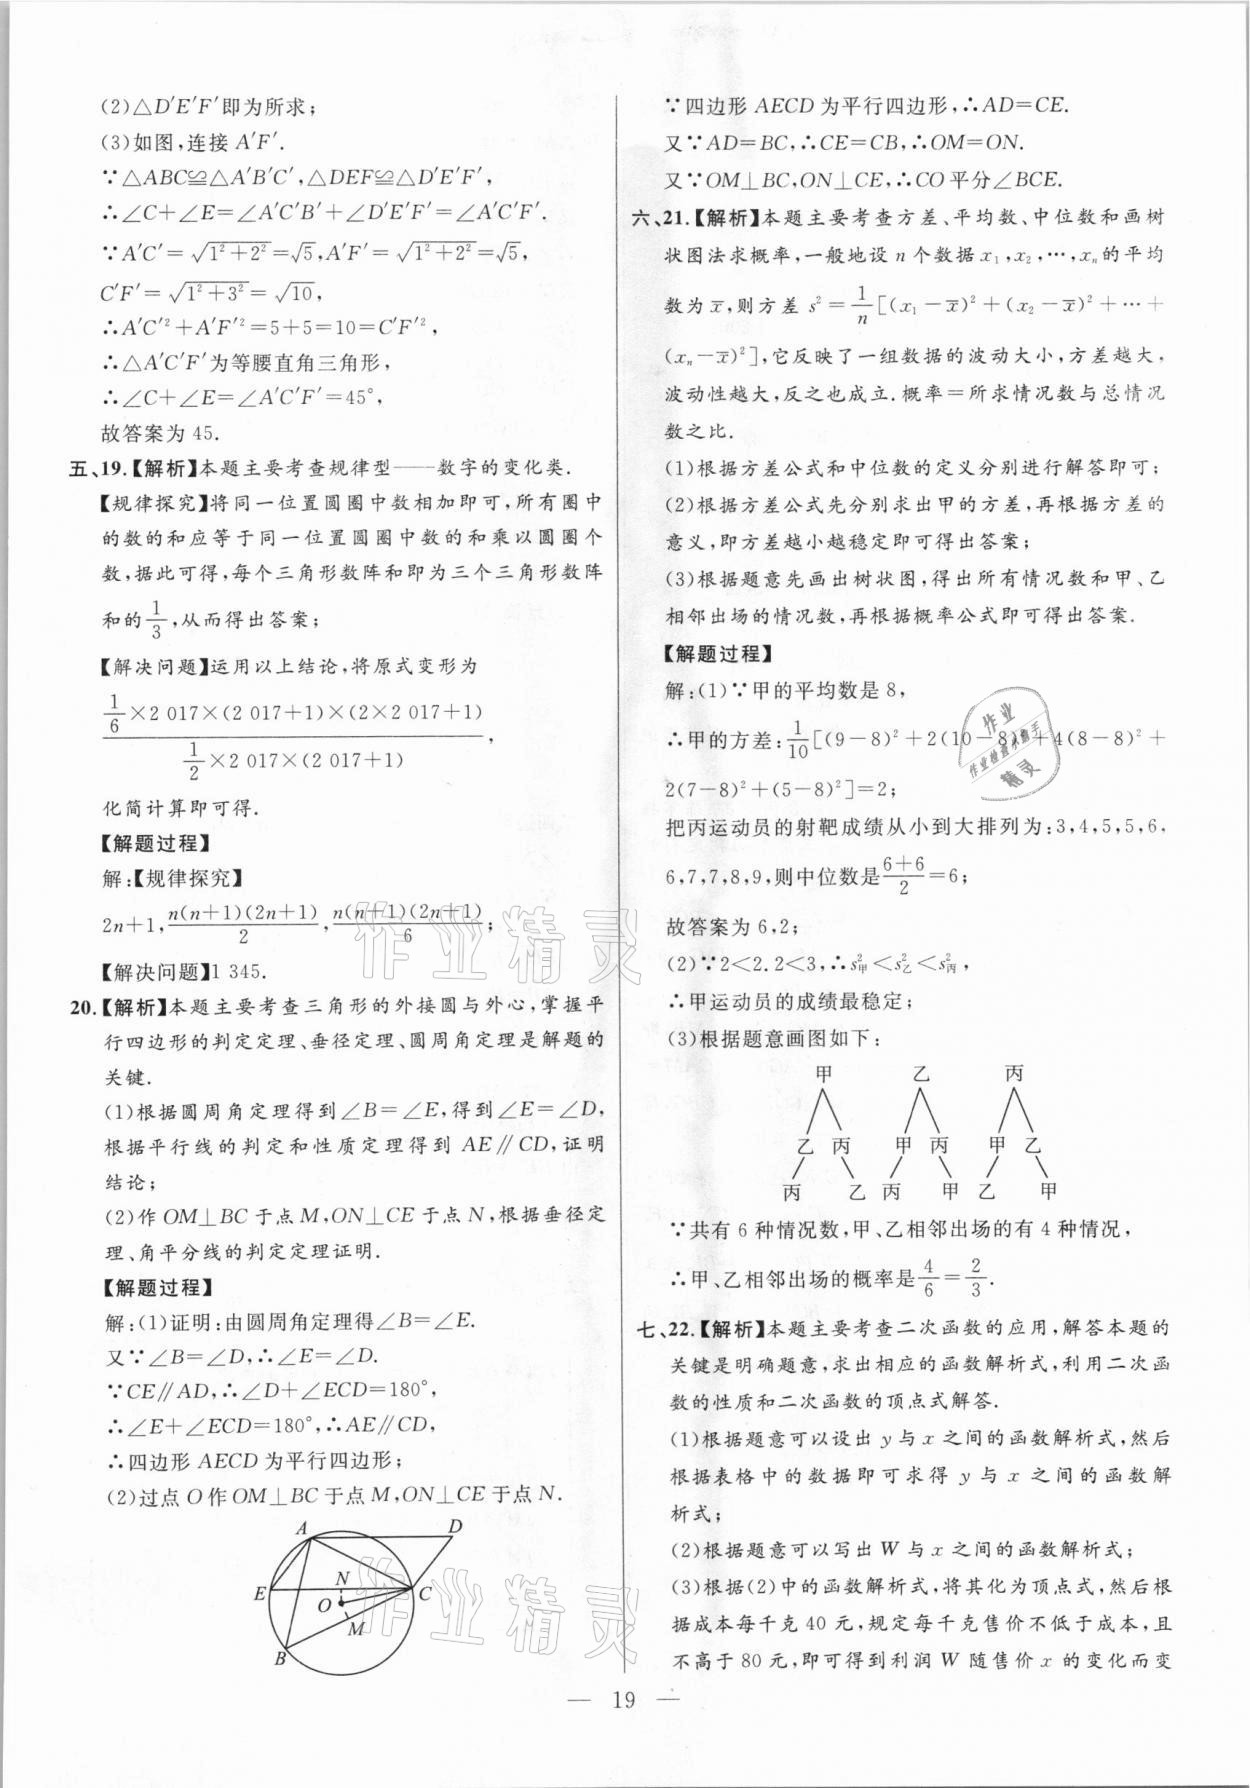 (2)△D′E′F′即为所求；
(3)如图，连接 A′F′.
∵△ABC≌△A′B′C′，△DEF≌△D′E′F′，
∴∠C+∠E=∠A′C′B′+∠D′E′F′=∠A′C′F′.
∵A′C′=√(1²+2²)=√5，A′F′=√(1²+2²)=√5，
C′F′=√(1²+3²)=√10，
∴A′C′²+A′F′²=5+5=10=C′F′²，
∴△A′C′F′为等腰直角三角形，
∴∠C+∠E=∠A′C′F′=45°，
故答案为 45.
五、19.【解析】本题主要考查规律型——数字的变化类.
【规律探究】将同一位置圆圈中数相加即可，所有圈中
的数的和应等于同一位置圆圈中数的和乘以圆圈个
数，据此可得，每个三角形数阵和即为三个三角形数阵
和的1/3，从而得出答案；
【解决问题】运用以上结论，将原式变形为
1/6×2 017×(2 017+1)×(2×2 017+1)
1/2×2 017×(2 017+1)，
化简计算即可得.
【解题过程】
解：【规律探究】
2n+1，n(n+1)(2n+1)/2，n(n+1)(2n+1)/6；
【解决问题】1 345.
20.【解析】本题主要考查三角形的外接圆与外心，掌握平
行四边形的判定定理、垂径定理、圆周角定理是解题的
关键.
(1)根据圆周角定理得到∠B=∠E，得到∠E=∠D，
根据平行线的判定和性质定理得到 AE∥CD，证明
结论；
(2)作 OM⊥BC 于点 M，ON⊥CE 于点 N，根据垂径定
理、角平分线的判定定理证明.
【解题过程】
解：(1)证明：由圆周角定理得∠B=∠E.
又∵∠B=∠D，∴∠E=∠D.
∵CE∥AD，∴∠D+∠ECD=180°，
∴∠E+∠ECD=180°，∴AE∥CD，
∴四边形 AECD 为平行四边形；
(2)过点 O 作 OM⊥BC 于点 M，ON⊥CE 于点 N.
A D
E N C
O
M
B
∵四边形 AECD 为平行四边形，∴AD=CE.
又∵AD=BC，∴CE=CB，∴OM=ON.
又∵OM⊥BC，ON⊥CE，∴CO 平分∠BCE.
六、21.【解析】本题主要考查方差、平均数、中位数和画树
状图法求概率，一般地设 n 个数据 x₁，x₂，…，xₙ的平均
数为 x̄，则方差 s²=1/n[(x₁−x̄)²+(x₂−x̄)²+…+
(xₙ−x̄)²]，它反映了一组数据的波动大小，方差越大，
波动性越大，反之也成立.概率=所求情况数与总情况
数之比.
(1)根据方差公式和中位数的定义分别进行解答即可；
(2)根据方差公式先分别求出甲的方差，再根据方差的
意义，即方差越小越稳定即可得出答案；
(3)根据题意先画出树状图，得出所有情况数和甲、乙
相邻出场的情况数，再根据概率公式即可得出答案.
【解题过程】
解：(1)∵甲的平均数是 8，
∴甲的方差：1/10[(9−8)²+2(10−8)²+4(8−8)²+
2(7−8)²+(5−8)²]=2；
把丙运动员的射靶成绩从小到大排列为：3，4，5，5，6，
6，7，7，8，9，则中位数是(6+6)/2=6；
故答案为 6，2；
(2)∵2<2.2<3，∴s²甲<s²乙<s²丙，
∴甲运动员的成绩最稳定；
(3)根据题意画图如下：
甲 乙 丙
乙 丙 甲 丙 甲 乙
丙 乙 丙 甲 乙 甲
∵共有 6 种情况数，甲、乙相邻出场的有 4 种情况，
∴甲、乙相邻出场的概率是4/6=2/3.
七、22.【解析】本题主要考查二次函数的应用，解答本题的
关键是明确题意，求出相应的函数解析式，利用二次函
数的性质和二次函数的顶点式解答.
(1)根据题意可以设出 y 与 x 之间的函数解析式，然后
根据表格中的数据即可求得 y 与 x 之间的函数解
析式；
(2)根据题意可以写出 W 与 x 之间的函数解析式；
(3)根据(2)中的函数解析式，将其化为顶点式，然后根
据成本每千克 40 元，规定每千克售价不低于成本，且
不高于 80 元，即可得到利润 W 随售价 x 的变化而变
— 19 —
作业精灵
作业精灵
作业
精灵